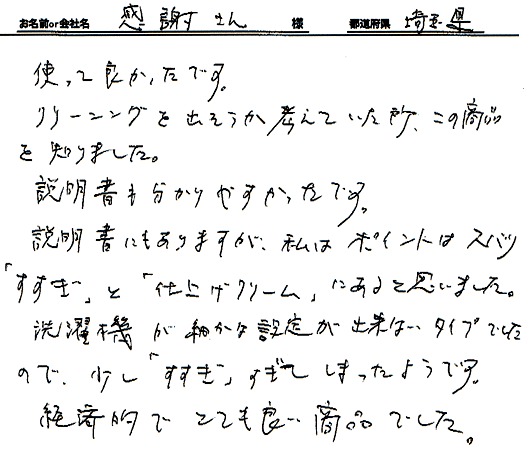 お名前or会社名 感謝す さん 様 都道府県 埼玉県
使って良かったです。
クリーニングを出そうか考えていた所、この商品
を知りました。
説明書も分かりやすかったです。
説明書にもありますが、私はポイントはズバリ
「すすぎ」と「仕上げクリーム」にあると思いました。
洗濯機が細かな設定が出来ないタイプでした
ので、少し「すすぎ」すぎてしまったようです。
経済的でとても良い商品でした。